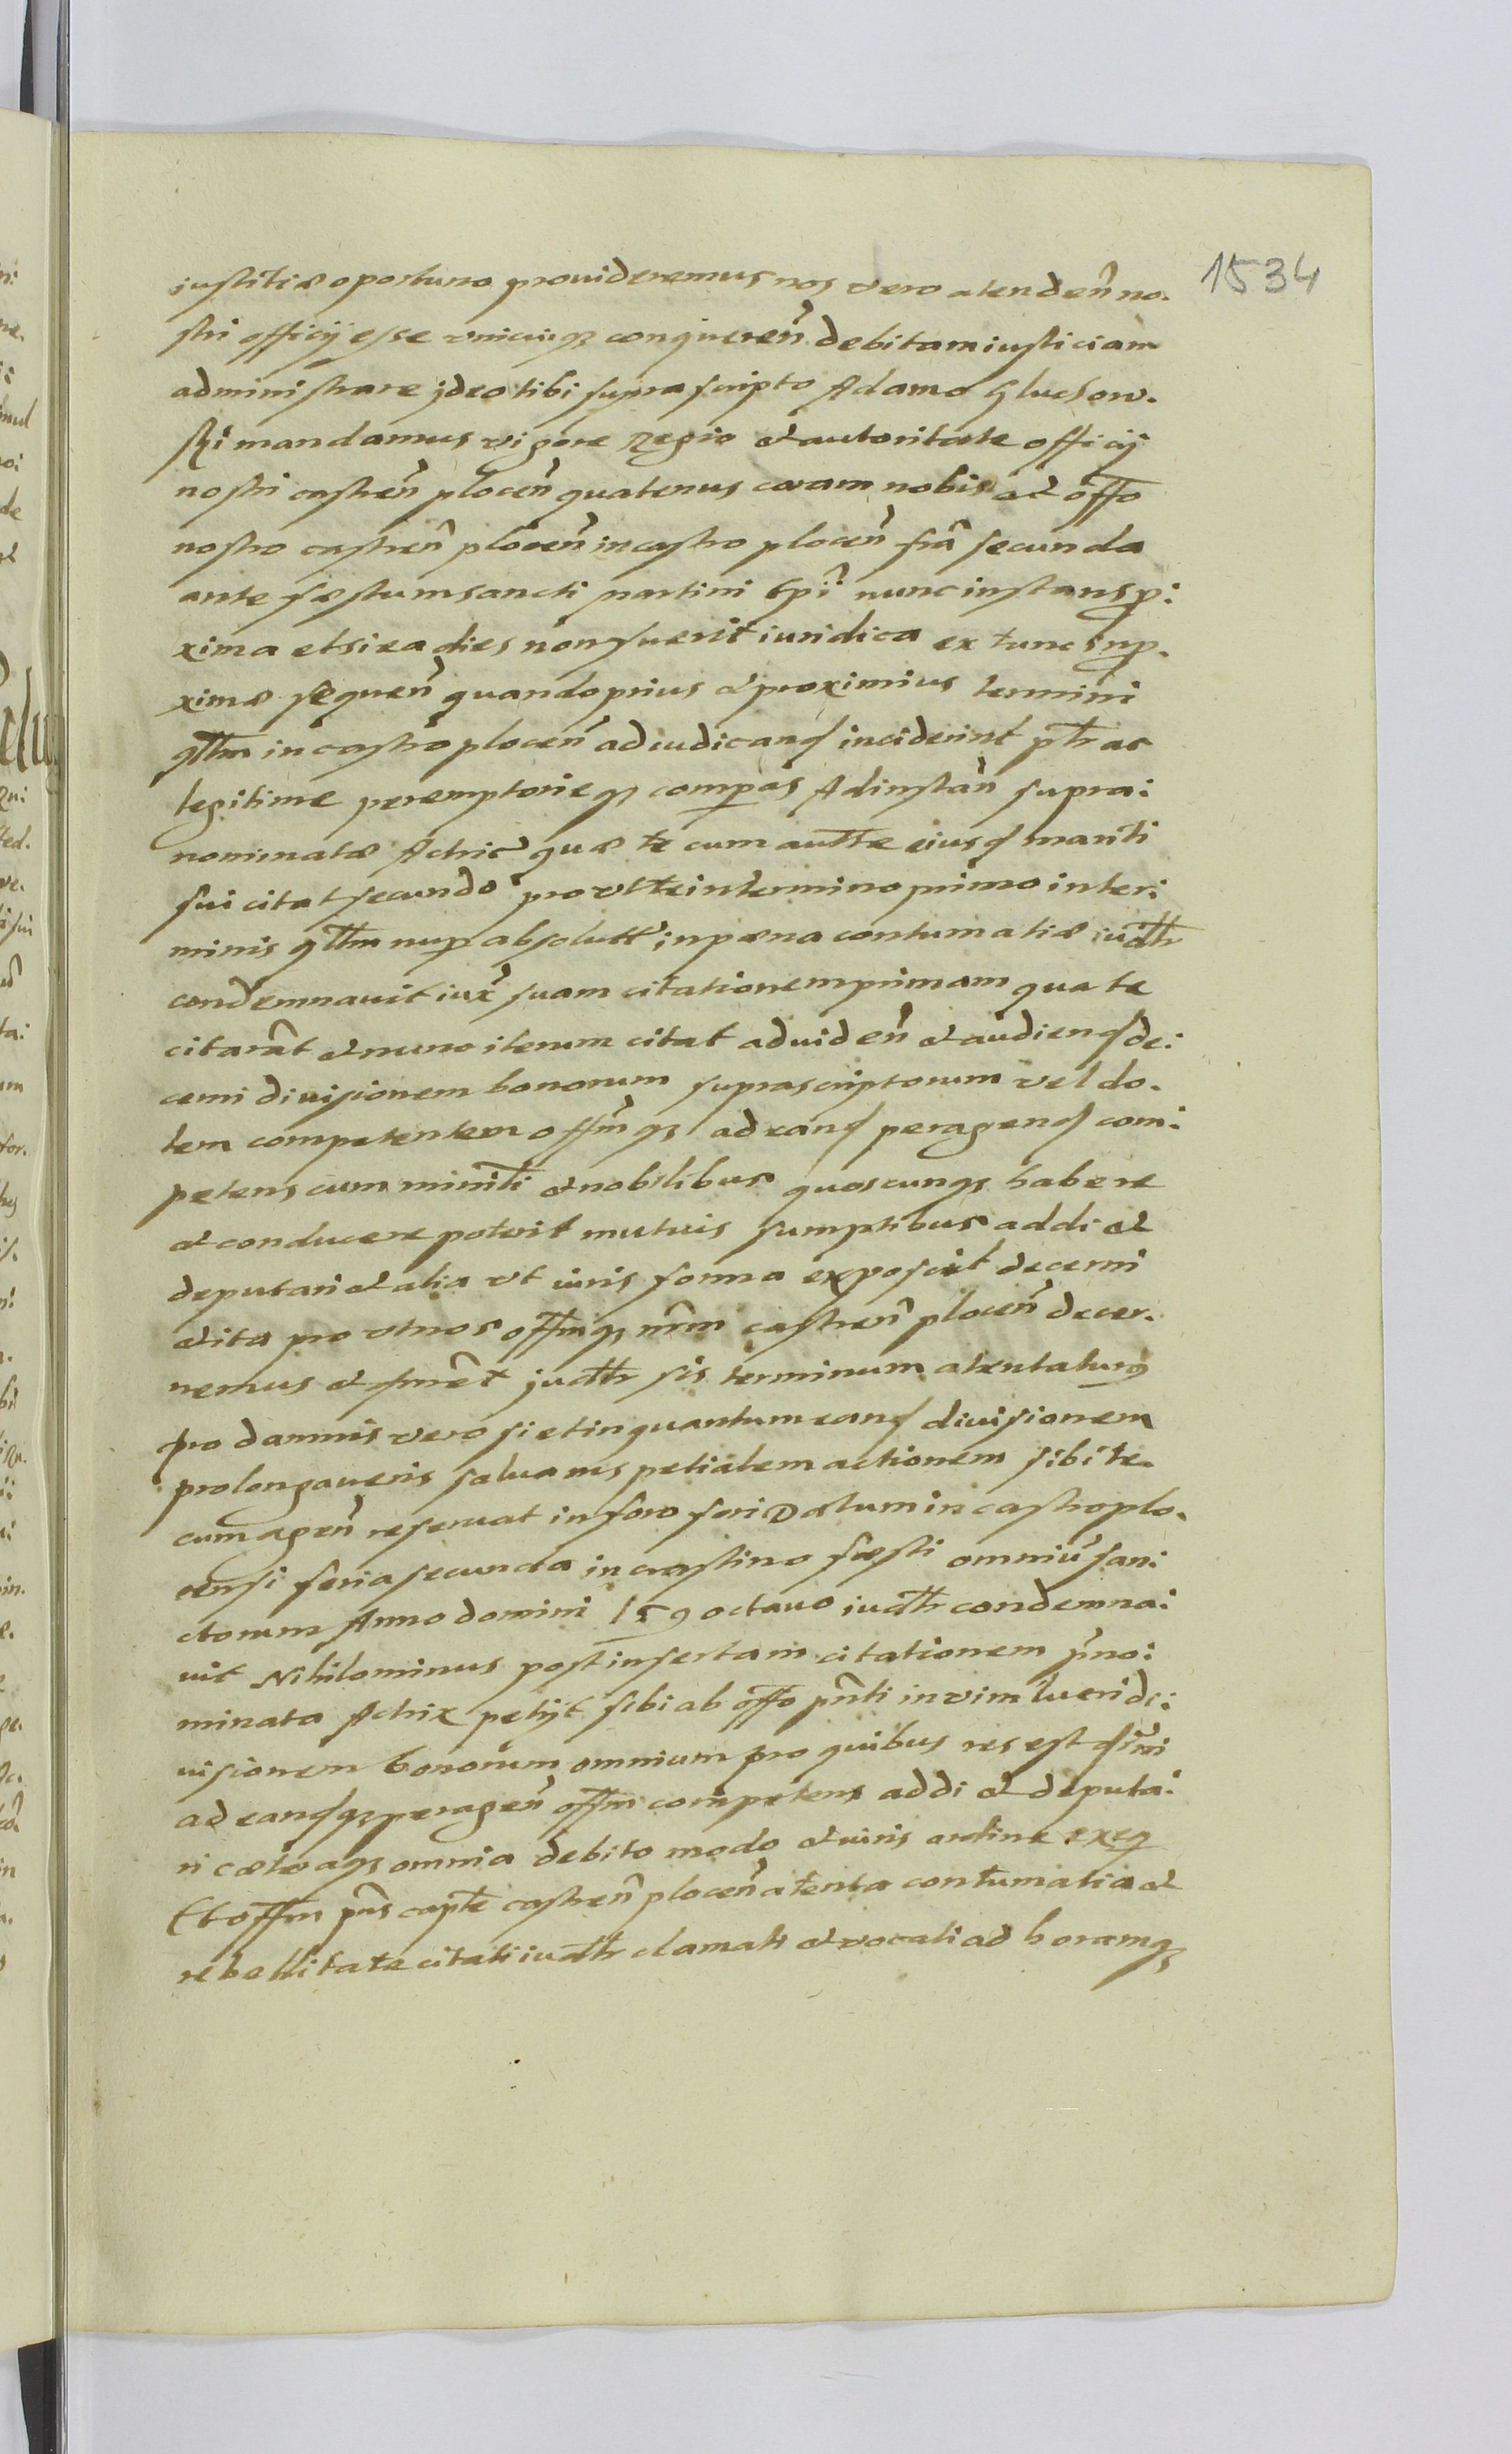 1534
iustitiæ oportuno prouideremus nos vero atendeñ no.
stri officij esse vnicuiqꝫ conquereñ debitam iusticiam
administrare jdeo tibi suprascripto Adamo Gluchow.
ski mandamus vigore Regio et autoritate officij
nostri castreñ ploceñ quatenus coram nobis et offo
nostro castreñ ploceñ in castro ploceñ fra secunda
ante fæstum sancti martini Epi nunc instans p:
xima etsi ea dies non fuerit iuridica ex tunc in p.
ximæ sequeñ quando prius et proximius termini
qllm in castro ploceñ ad iudicand inciderint plr ac
legitime peremptorieqꝫ compas Ad instañ supra:
nominatæ Actric quæ te cum autte eiusd mariti
sui citat secundo pro vt te in termino primo in ter:
minis qllm nup absolutt in pæna contumatiæ iudlr
condemnauit iux suam citationem primam qua te
citarat et nunc iterum citat ad videñ et audiend de:
cerni diuisionem bonorum suprascriptorum vel do.
tem competentem offmqꝫ ad eand peragend com:
petens cum ministi et nobilibus quoscunqꝫ habere
et conducere poterit mutuis sumptibus addi et
deputari et alia vt iuris forma exposcit decerni
et ita pro vt nos offmqꝫ nrm castreñ ploceñ decer.
nemus et judlr sis terminum atentaturus
pro damnis vero si et in quantum eand diuisionem
prolongaueris saluam spetialem actionem sibi te.
cum ageñ reseruat in foro fori Datum in castro plo.
censi feria secunda in crastino fæsti omniũ san:
ctorum Anno domini 159 octauo iudlr condemna:
uit Nihilominus post insertam citationem pno:
minata Actrix petijt sibi ab offo pnti in vim lucri di:
uisionem bonorum omnium pro quibus res est
ad eandqꝫ perageñ offm competens addi et deputa:
ri cæteraqꝫ omnia debito modo et iuris ordine exeq
Et offm pns capte castreñ ploceñ atenta contumatia et
rebellitate citati iudlr clamati et vocati ad horamqꝫ